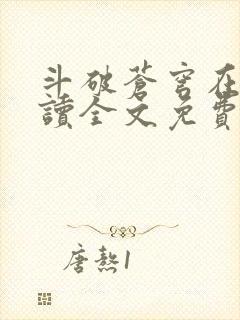 斗破蒼穹在
讀全文免費
唐熬1